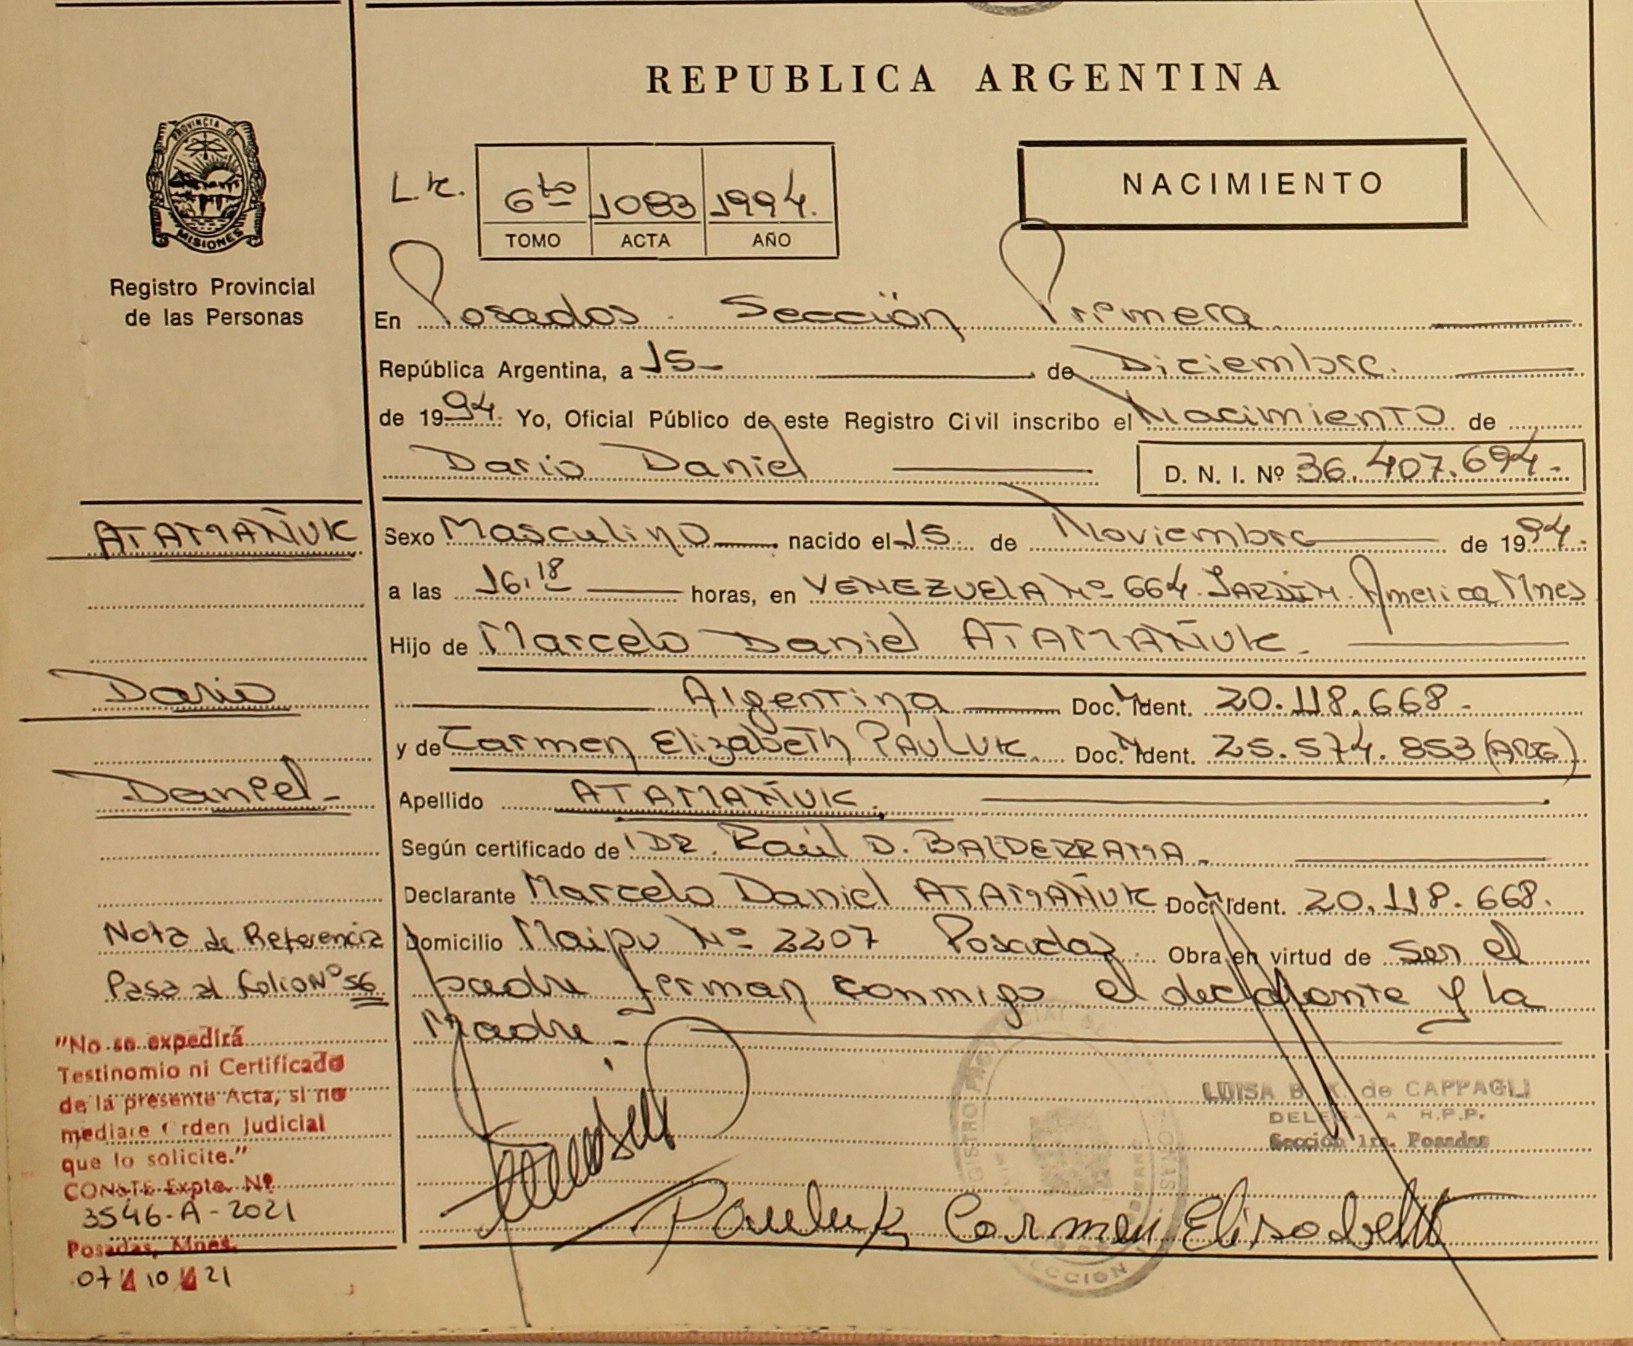 REPUBLICA ARGENTINA
PROVINCIA DE
MISIONES
Registro Provincial
de las Personas
6to 1083 1994.
TOMO ACTA AÑO
NACIMIENTO
En Posadas. Sección Primera
República Argentina, a 15 de Diciembre.
de 1994. Yo, Oficial Público de este Registro Civil inscribo el Nacimiento de
Dario Daniel D. N. I. Nº 36.407.694.-
ATAMAÑUK
Dario
Daniel-
Sexo Masculino nacido el 15 de Noviembre de 1994.
a las 16.18 horas, en VENEZUELA Nº 664. JARDIN America Mnes
Hijo de Marcelo Daniel ATAMAÑUK.
Argentina Doc. Ident. 20.118.668-
y de Carmen Elizabeth PAULUK. Doc. Ident. 25.574.853 (ARG)
Apellido ATAMAÑUK.
Según certificado de DR. Raúl D. BALDERRAMA.
Declarante Marcelo Daniel ATAMAÑUK Doc. Ident. 20.118.668.
Domicilio Maipu Nº 2207 Posadas Obra en virtud de ser el
padre firman conmigo el declarante y la
Madre.-
Nota de Referencia
Pasa al folio Nº 56
"No se expedirá
Testimonio ni Certificado
de la presente Acta, si no
mediare Orden Judicial
que lo solicite."
CONSTE Expte. Nº
3546-A-2021
Posadas, Mnes.
07 10 21
LUISA B. K. de CAPPAGLI
DELEGADA R.P.P.
Sección 1ra. Posadas
Pauluk Carmen Elisabeth